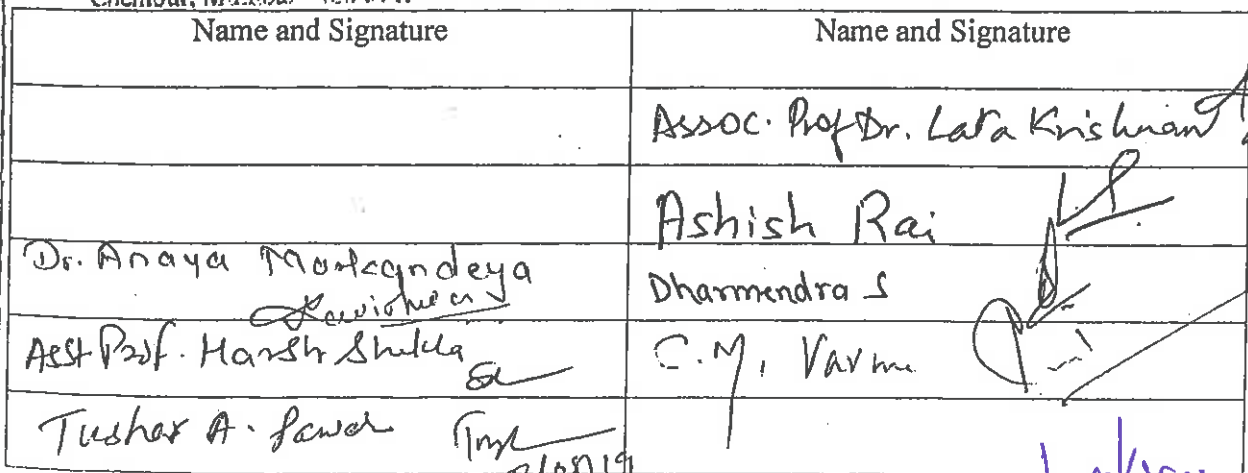 Chembur, Mumbai
Name and Signature Name and Signature
Assoc. Prof Dr. Lata Krishnan
Ashish Rai
Dr. Anaya Markandeya Dharmendra S
Asst Prof. Harsh Shukla C.M. Varma
Tushar A.